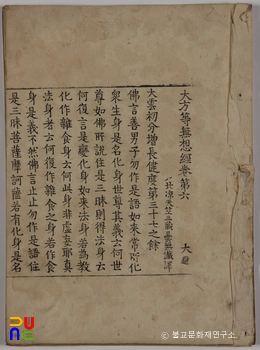 大方等無想經卷第六 大
大雲初分增長健度第三十七之餘
北涼天竺三藏曇無讖譯
佛言善男子勿作是語如來常祕化
衆生身是名化身世尊其義云何世
尊如佛所說住是三昧則得法身云
何復言是變化身如來法身若為教
化作雜食身云何此身非虛妄耶真
法身者云何復作雜食之身若作食
身是義不然佛言止止勿作是語住
是三昧菩薩摩訶薩若有化身是名
불교문화재연구소